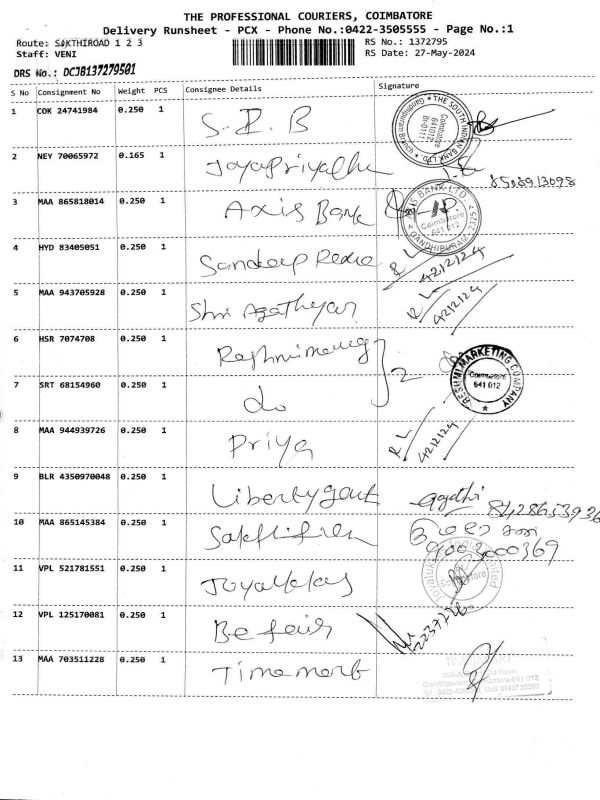 THE PROFESSIONAL COURIERS, COIMBATORE
Delivery Runsheet - PCX - Phone No.:0422-3505555 - Page No.:1
Route: SAKTHIROAD 1 2 3 RS No.: 1372795
Staff: VENI RS Date: 27-May-2024
DRS No.: DCJB137279501
S No Consignment No Weight PCS Consignee Details Signature
1 COK 24741984 0.250 1 S.I.B
THE SOUTH INDIAN BANK LTD. Coimbatore 641012
2 NEY 70065972 0.165 1
3 MAA 865818014 0.250 1 Axis Bank
AXIS BANK LTD. Coimbatore 641 012 GANDHIPURAM
4 HYD 83405051 0.250 1 Sandeep
RL 4212124
5 MAA 943705928 0.250 1 Shri Agathyar
RL 4212124
6 HSR 7074708 0.250 1
2
RESHMI MARKETING COMPANY Coimbatore 641 012
7 SRT 68154960 0.250 1 do
8 MAA 944939726 0.250 1 Priya
RL 4212124
9 BLR 4350970048 0.250 1 Liberty
10 MAA 865145384 0.250 1
9003000369
11 VPL 521781551 0.250 1
12 VPL 125170081 0.250 1 Be fair
13 MAA 703511228 0.250 1 Time